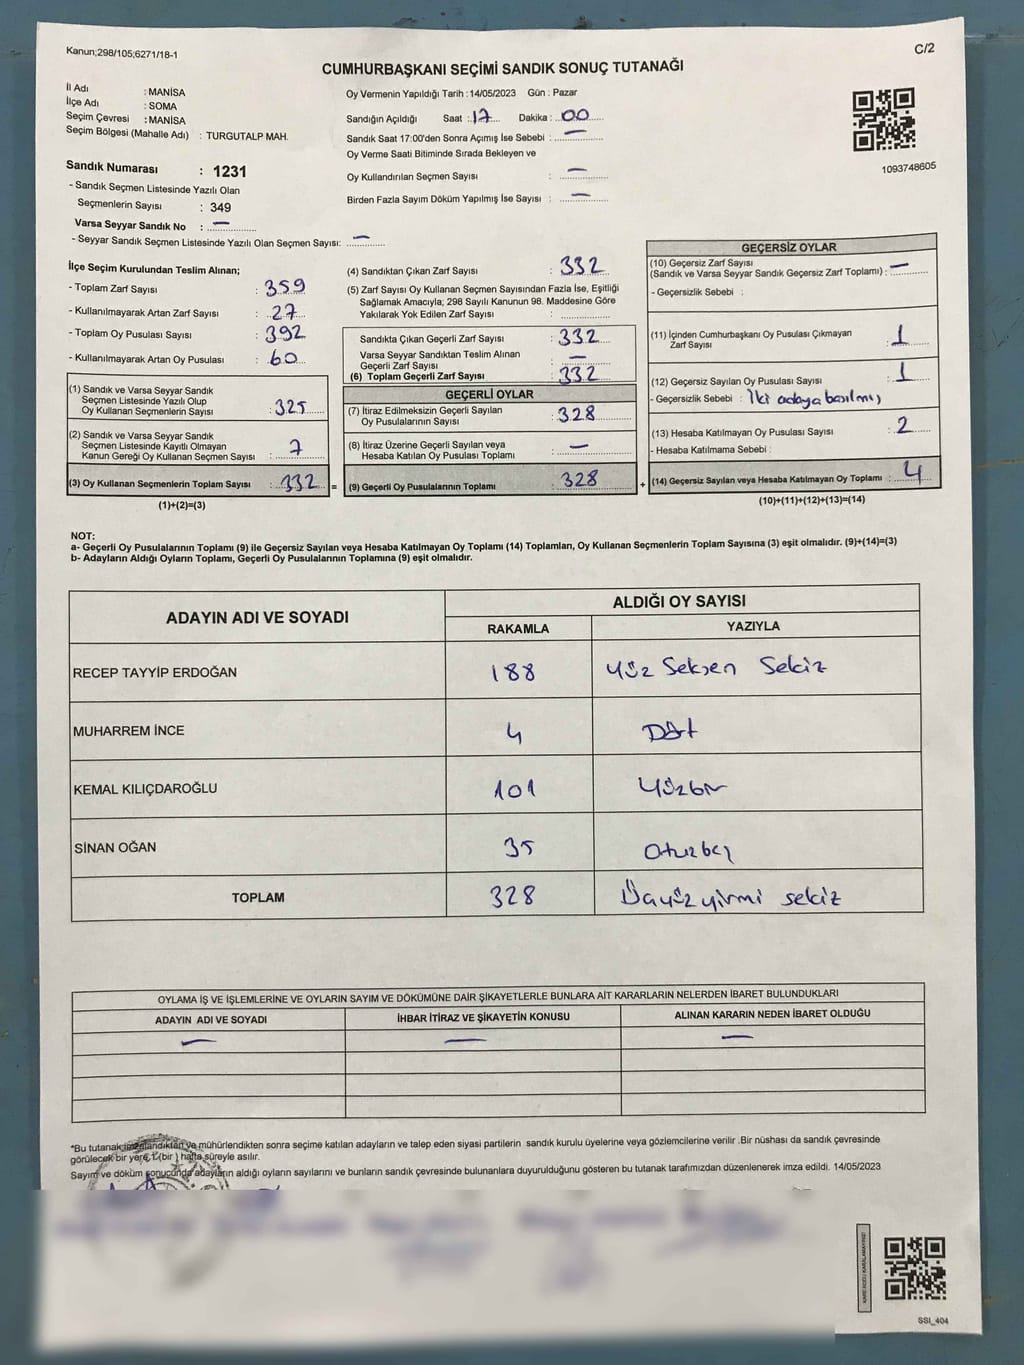 Kanun;298/105;6271/18-1
C/2
CUMHURBAŞKANI SEÇİMİ SANDIK SONUÇ TUTANAĞI
İl Adı : MANİSA
İlçe Adı : SOMA
Seçim Çevresi : MANİSA
Seçim Bölgesi (Mahalle Adı) : TURGUTALP MAH.
Sandık Numarası : 1231
- Sandık Seçmen Listesinde Yazılı Olan
Seçmenlerin Sayısı : 349
Varsa Seyyar Sandık No : —
- Seyyar Sandık Seçmen Listesinde Yazılı Olan Seçmen Sayısı: —
Oy Vermenin Yapıldığı Tarih :14/05/2023 Gün : Pazar
Sandığın Açıldığı Saat : 17 Dakika : 00
Sandık Saat 17:00'den Sonra Açımış İse Sebebi : —
Oy Verme Saati Bitiminde Sırada Bekleyen ve
Oy Kullandırılan Seçmen Sayısı : —
Birden Fazla Sayım Döküm Yapılmış İse Sayısı : —
1093748605
İlçe Seçim Kurulundan Teslim Alınan;
- Toplam Zarf Sayısı : 359
- Kullanılmayarak Artan Zarf Sayısı : 27
- Toplam Oy Pusulası Sayısı : 392
- Kullanılmayarak Artan Oy Pusulası : 60
(1) Sandık ve Varsa Seyyar Sandık
Seçmen Listesinde Yazılı Olup
Oy Kullanan Seçmenlerin Sayısı : 325
(2) Sandık ve Varsa Seyyar Sandık
Seçmen Listesinde Kayıtlı Olmayan
Kanun Gereği Oy Kullanan Seçmen Sayısı : 7
(3) Oy Kullanan Seçmenlerin Toplam Sayısı : 332 =
(1)+(2)=(3)
(4) Sandıktan Çıkan Zarf Sayısı : 332
(5) Zarf Sayısı Oy Kullanan Seçmen Sayısından Fazla İse, Eşitliği
Sağlamak Amacıyla; 298 Sayılı Kanunun 98. Maddesine Göre
Yakılarak Yok Edilen Zarf Sayısı :
Sandıkta Çıkan Geçerli Zarf Sayısı : 332
Varsa Seyyar Sandıktan Teslim Alınan
Geçerli Zarf Sayısı : —
(6) Toplam Geçerli Zarf Sayısı : 332
GEÇERLİ OYLAR
(7) İtiraz Edilmeksizin Geçerli Sayılan
Oy Pusulalarının Sayısı : 328
(8) İtiraz Üzerine Geçerli Sayılan veya
Hesaba Katılan Oy Pusulası Toplamı : —
(9) Geçerli Oy Pusulalarının Toplamı : 328 +
GEÇERSİZ OYLAR
(10) Geçersiz Zarf Sayısı
(Sandık ve Varsa Seyyar Sandık Geçersiz Zarf Toplamı) : —
- Geçersizlik Sebebi :
(11) İçinden Cumhurbaşkanı Oy Pusulası Çıkmayan
Zarf Sayısı : 1
(12) Geçersiz Sayılan Oy Pusulası Sayısı : 1
- Geçersizlik Sebebi : İki adaya basılmış
(13) Hesaba Katılmayan Oy Pusulası Sayısı : 2
- Hesaba Katılmama Sebebi :
(14) Geçersiz Sayılan veya Hesaba Katılmayan Oy Toplamı : 4
(10)+(11)+(12)+(13)=(14)
NOT:
a- Geçerli Oy Pusulalarının Toplamı (9) ile Geçersiz Sayılan veya Hesaba Katılmayan Oy Toplamı (14) Toplamları, Oy Kullanan Seçmenlerin Toplam Sayısına (3) eşit olmalıdır. (9)+(14)=(3)
b- Adayların Aldığı Oyların Toplamı, Geçerli Oy Pusulalarının Toplamına (9) eşit olmalıdır.
ADAYIN ADI VE SOYADI
ALDIĞI OY SAYISI
RAKAMLA YAZIYLA
RECEP TAYYİP ERDOĞAN 188 Yüz Seksen Sekiz
MUHARREM İNCE 4 Dört
KEMAL KILIÇDAROĞLU 101 Yüzbir
SİNAN OĞAN 35 Otuzbeş
TOPLAM 328 Üçyüz yirmi sekiz
OYLAMA İŞ VE İŞLEMLERİNE VE OYLARIN SAYIM VE DÖKÜMÜNE DAİR ŞİKAYETLERLE BUNLARA AİT KARARLARIN NELERDEN İBARET BULUNDUKLARI
ADAYIN ADI VE SOYADI İHBAR İTİRAZ VE ŞİKAYETİN KONUSU ALINAN KARARIN NEDEN İBARET OLDUĞU
— — —
*Bu tutanak imzalandıktan ve mühürlendikten sonra seçime katılan adayların ve talep eden siyasi partilerin sandık kurulu üyelerine veya gözlemcilerine verilir .Bir nüshası da sandık çevresinde
görülecek bir yere 1 (bir ) hafta süreyle asılır.
Sayım ve döküm sonucunda adayların aldığı oyların sayılarını ve bunların sandık çevresinde bulunanlara duyurulduğunu gösteren bu tutanak tarafımızdan düzenlenerek imza edildi. 14/05/2023
SSI_404